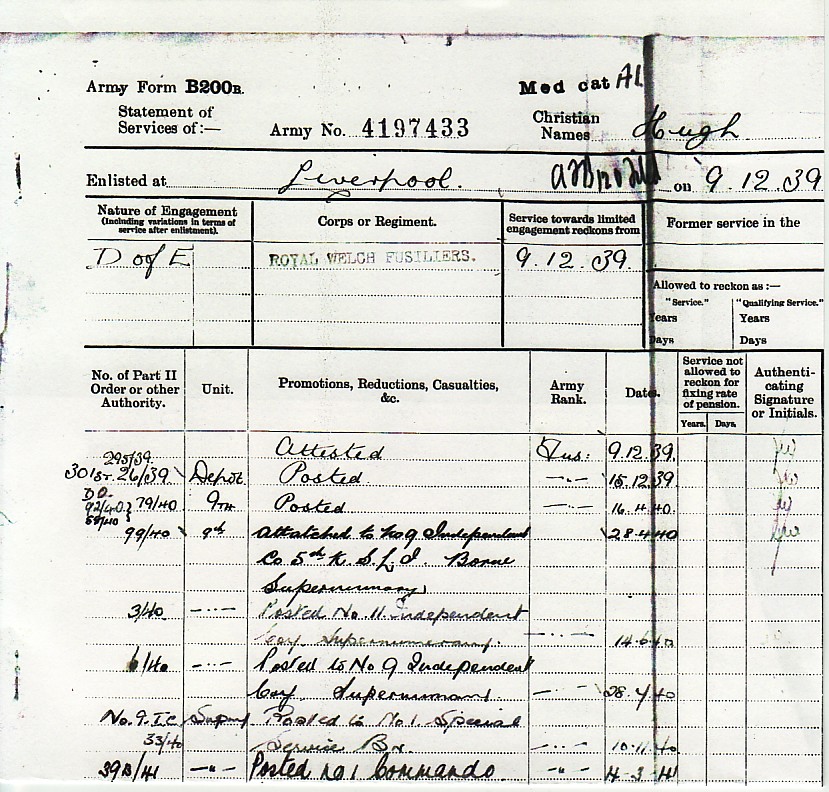 Army Form B200B.
Med cat A1
Statement of Services of:—
Army No. 4197433
Christian Names Hugh
Enlisted at Liverpool. on 9.12.39
Nature of Engagement (including variations in terms of service after enlistment).
Corps or Regiment.
Service towards limited engagement reckons from
Former service in the
D of E
ROYAL WELCH FUSILIERS.
9.12.39.
Allowed to reckon as :—
"Service." "Qualifying Service."
Years Years
Days Days
No. of Part II Order or other Authority.
Unit.
Promotions, Reductions, Casualties, &c.
Army Rank.
Dates.
Service not allowed to reckon for fixing rate of pension.
Years. Days.
Authenticating Signature or Initials.
295/39. Attested Fus: 9.12.39.
26/39 Depot Posted —"— 15.12.39
DO 92/40 79/40 9TH Posted —"— 16.4.40.
99/40 9th Attatched to No 9 Independent 28.4.40
Co 5th K.S.L.I. Borne
Supernumary
3/40 —"— Posted No. 11 Independent
Coy Supernumerary. —"— 14.6.40
6/40 —"— Posted to No 9 Independent
Coy Supernumary —"— 28.7.40
No. 9. I.C Supny Posted to No 1 Special
33/40 Service Bn. —"— 10.11.40
39B/41 —"— Posted No 1 Commando. —"— 4-3-41